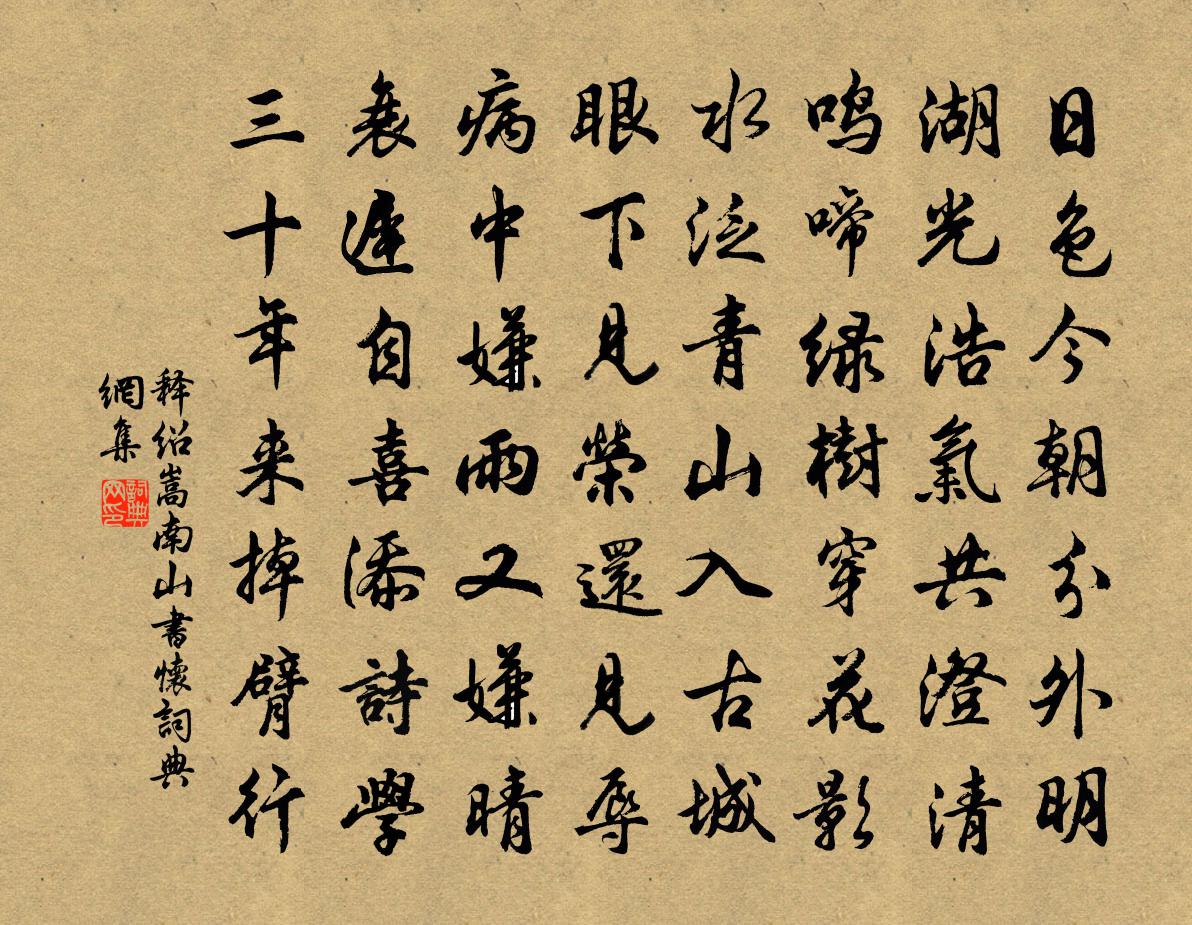 日色今朝分外明
湖光浩氣共澄清
鸣啼绿樹穿花影
水泛青山入古城
眼下見榮還見辱
病中嫌雨又嫌晴
衰遲自喜添詩學
三十年来掉臂行
释绍嵩南山書懷詞典
網集
詞典网印